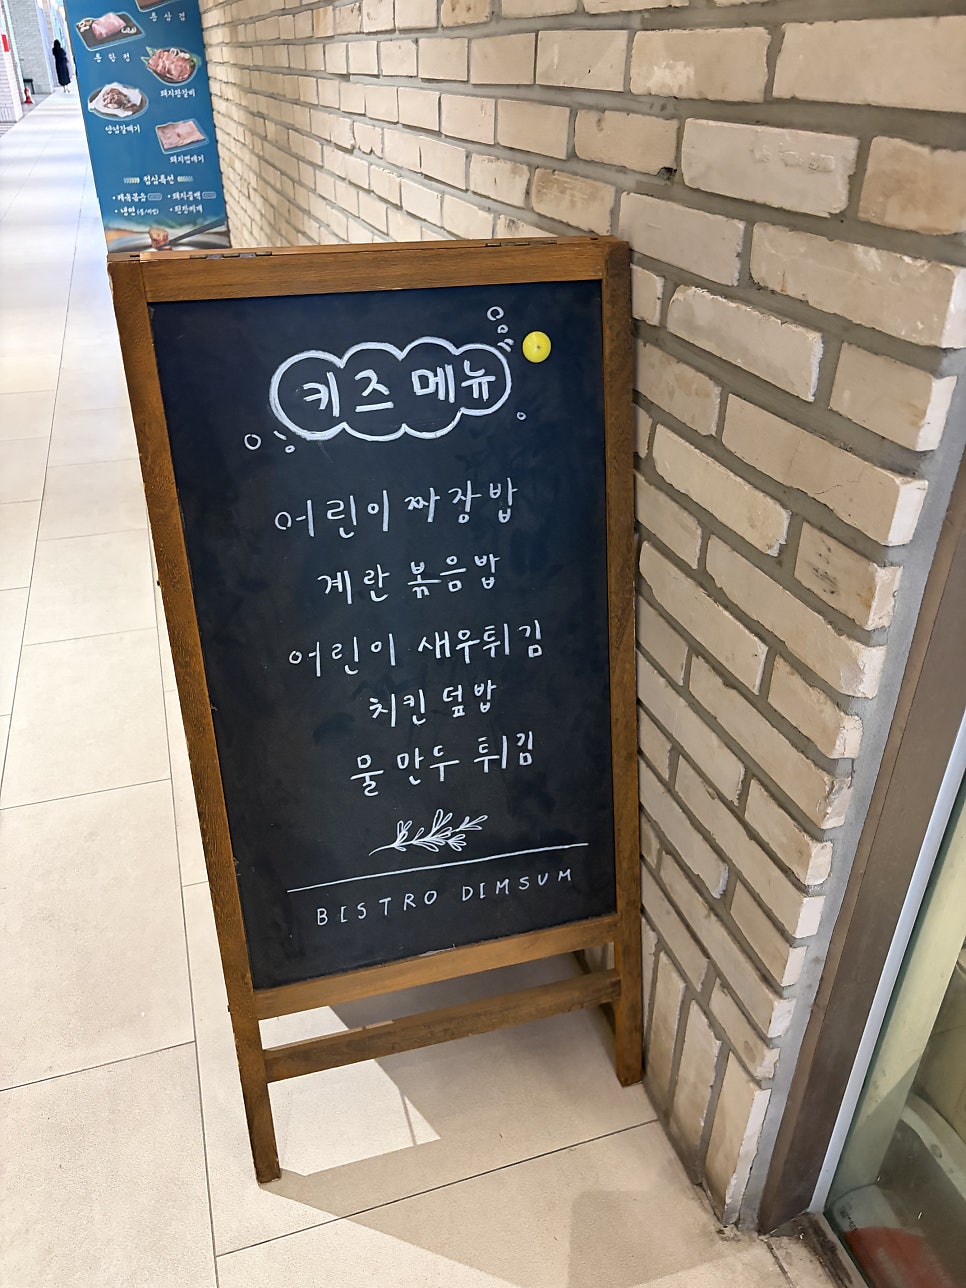 통삼겹
통항정
돼지왕갈비
양념갈매기
돼지껍데기
점심특선
• 제육볶음
• 돼지불백
• 냉면 (물/비빔)
• 된장찌개
키즈 메뉴
어린이 짜장밥
계란 볶음밥
어린이 새우튀김
치킨 덮밥
물만두 튀김
BISTRO DIMSUM